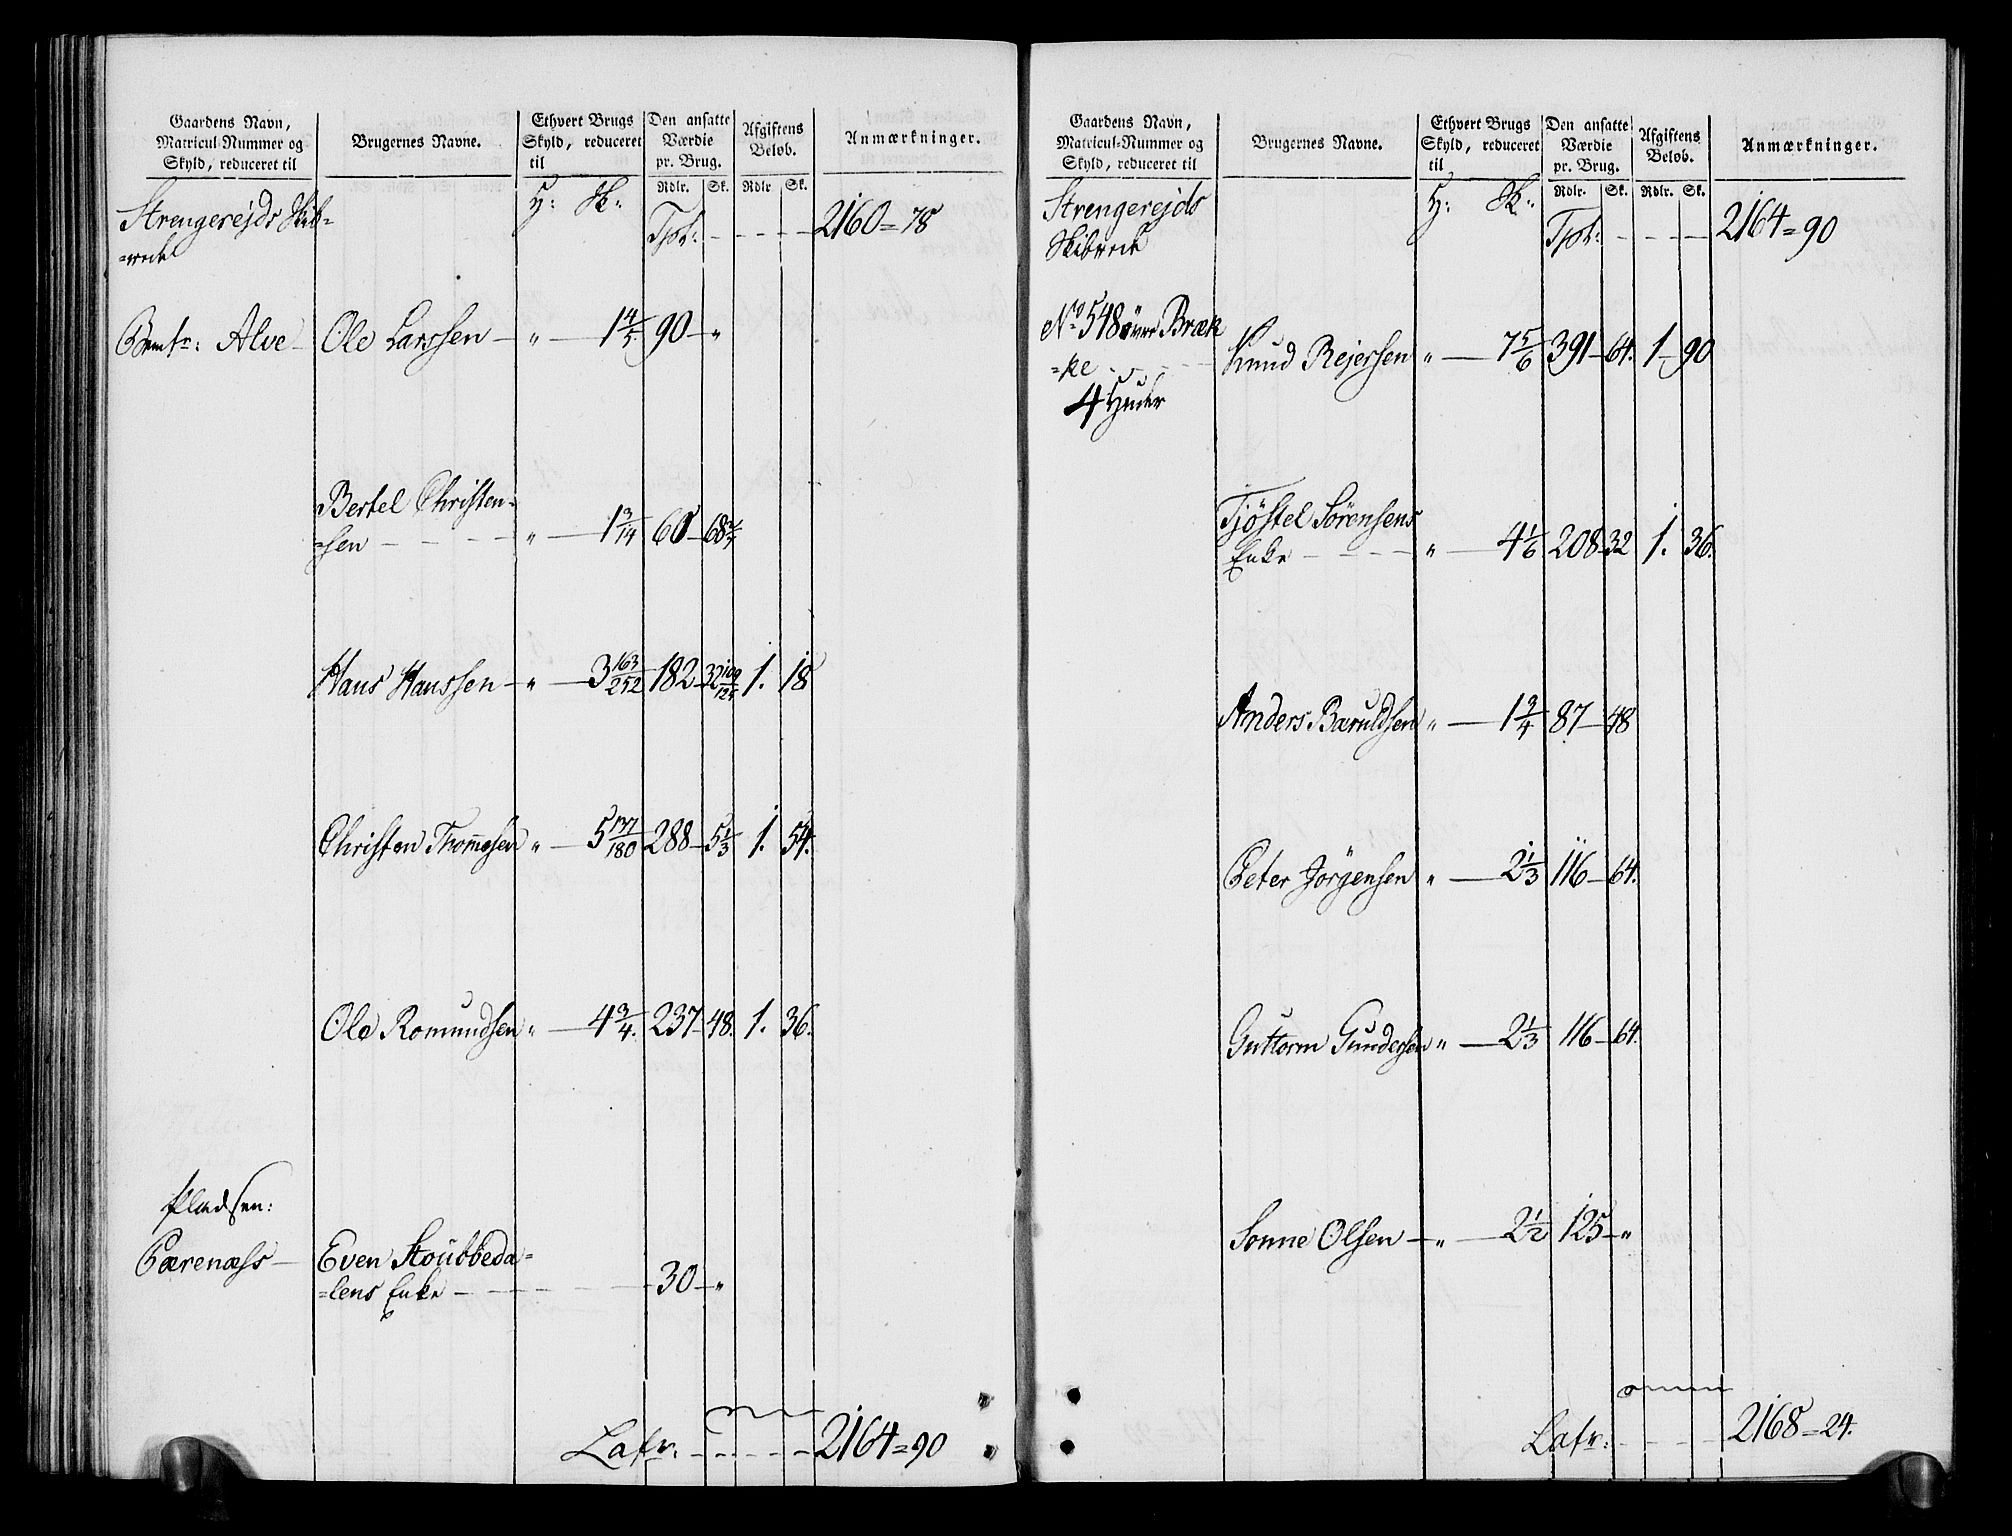 Gaardens Navn,
Matricul-Nummer og
Skyld, reduceret til
Brugernes Navne.
Ethvert Brugs
Skyld, reduceret
til
Den ansatte
Værdie
pr. Brug.
Afgiftens
Beløb.
Anmærkninger.
Rdlr. Sk. Rdlr Sk.
Strengerejds Skib=
=rede
H: Sk:
Tpt: 2160=78
Alve Ole Larssen — " — 1 4/5 90 — "
Bertel Christen=
=sen — " — 1 3/14 60 — 68 4/7
Hans Hanssen — " — 3 163/252 182 — 32 1. 18
Christen Thomesen " — 5 137/180 288 — 5 1/3 1. 54.
Ole Romundsen " — 4 3/4. 237 — 48. 1. 36.
Pladsen:
Pærenæss — Even Stoubbeda=
=lens Enke — 30 — "
Lafr: 2164=90
Gaardens Navn,
Matricul-Nummer og
Skyld, reduceret til
Brugernes Navne.
Ethvert Brugs
Skyld, reduceret
til
Den ansatte
Værdie
pr. Brug.
Afgiftens
Beløb.
Anmærkninger.
Rdlr. Sk. Rdlr. Sk.
Strengerejds
Skibrede
H: Sk:
Tpt: 2164=90
No 548 øvre Bræk
=ke
4 Huder
Knud Rejersen " — 7 5/6 391 — 64. 1 — 90
Tjøstel Sørensens
Enke — " — 4 1/6 208 — 32 1. 36.
Anders Baruldsen " — 1 3/4 87 — 48
Peter Jørgensen " — 2 1/3 116 — 64.
Guttorm Gundersen " — 2 1/3 116 — 64.
Sonne Olsen — " — 2 1/2 125 — "
Lafr: 2168=24.